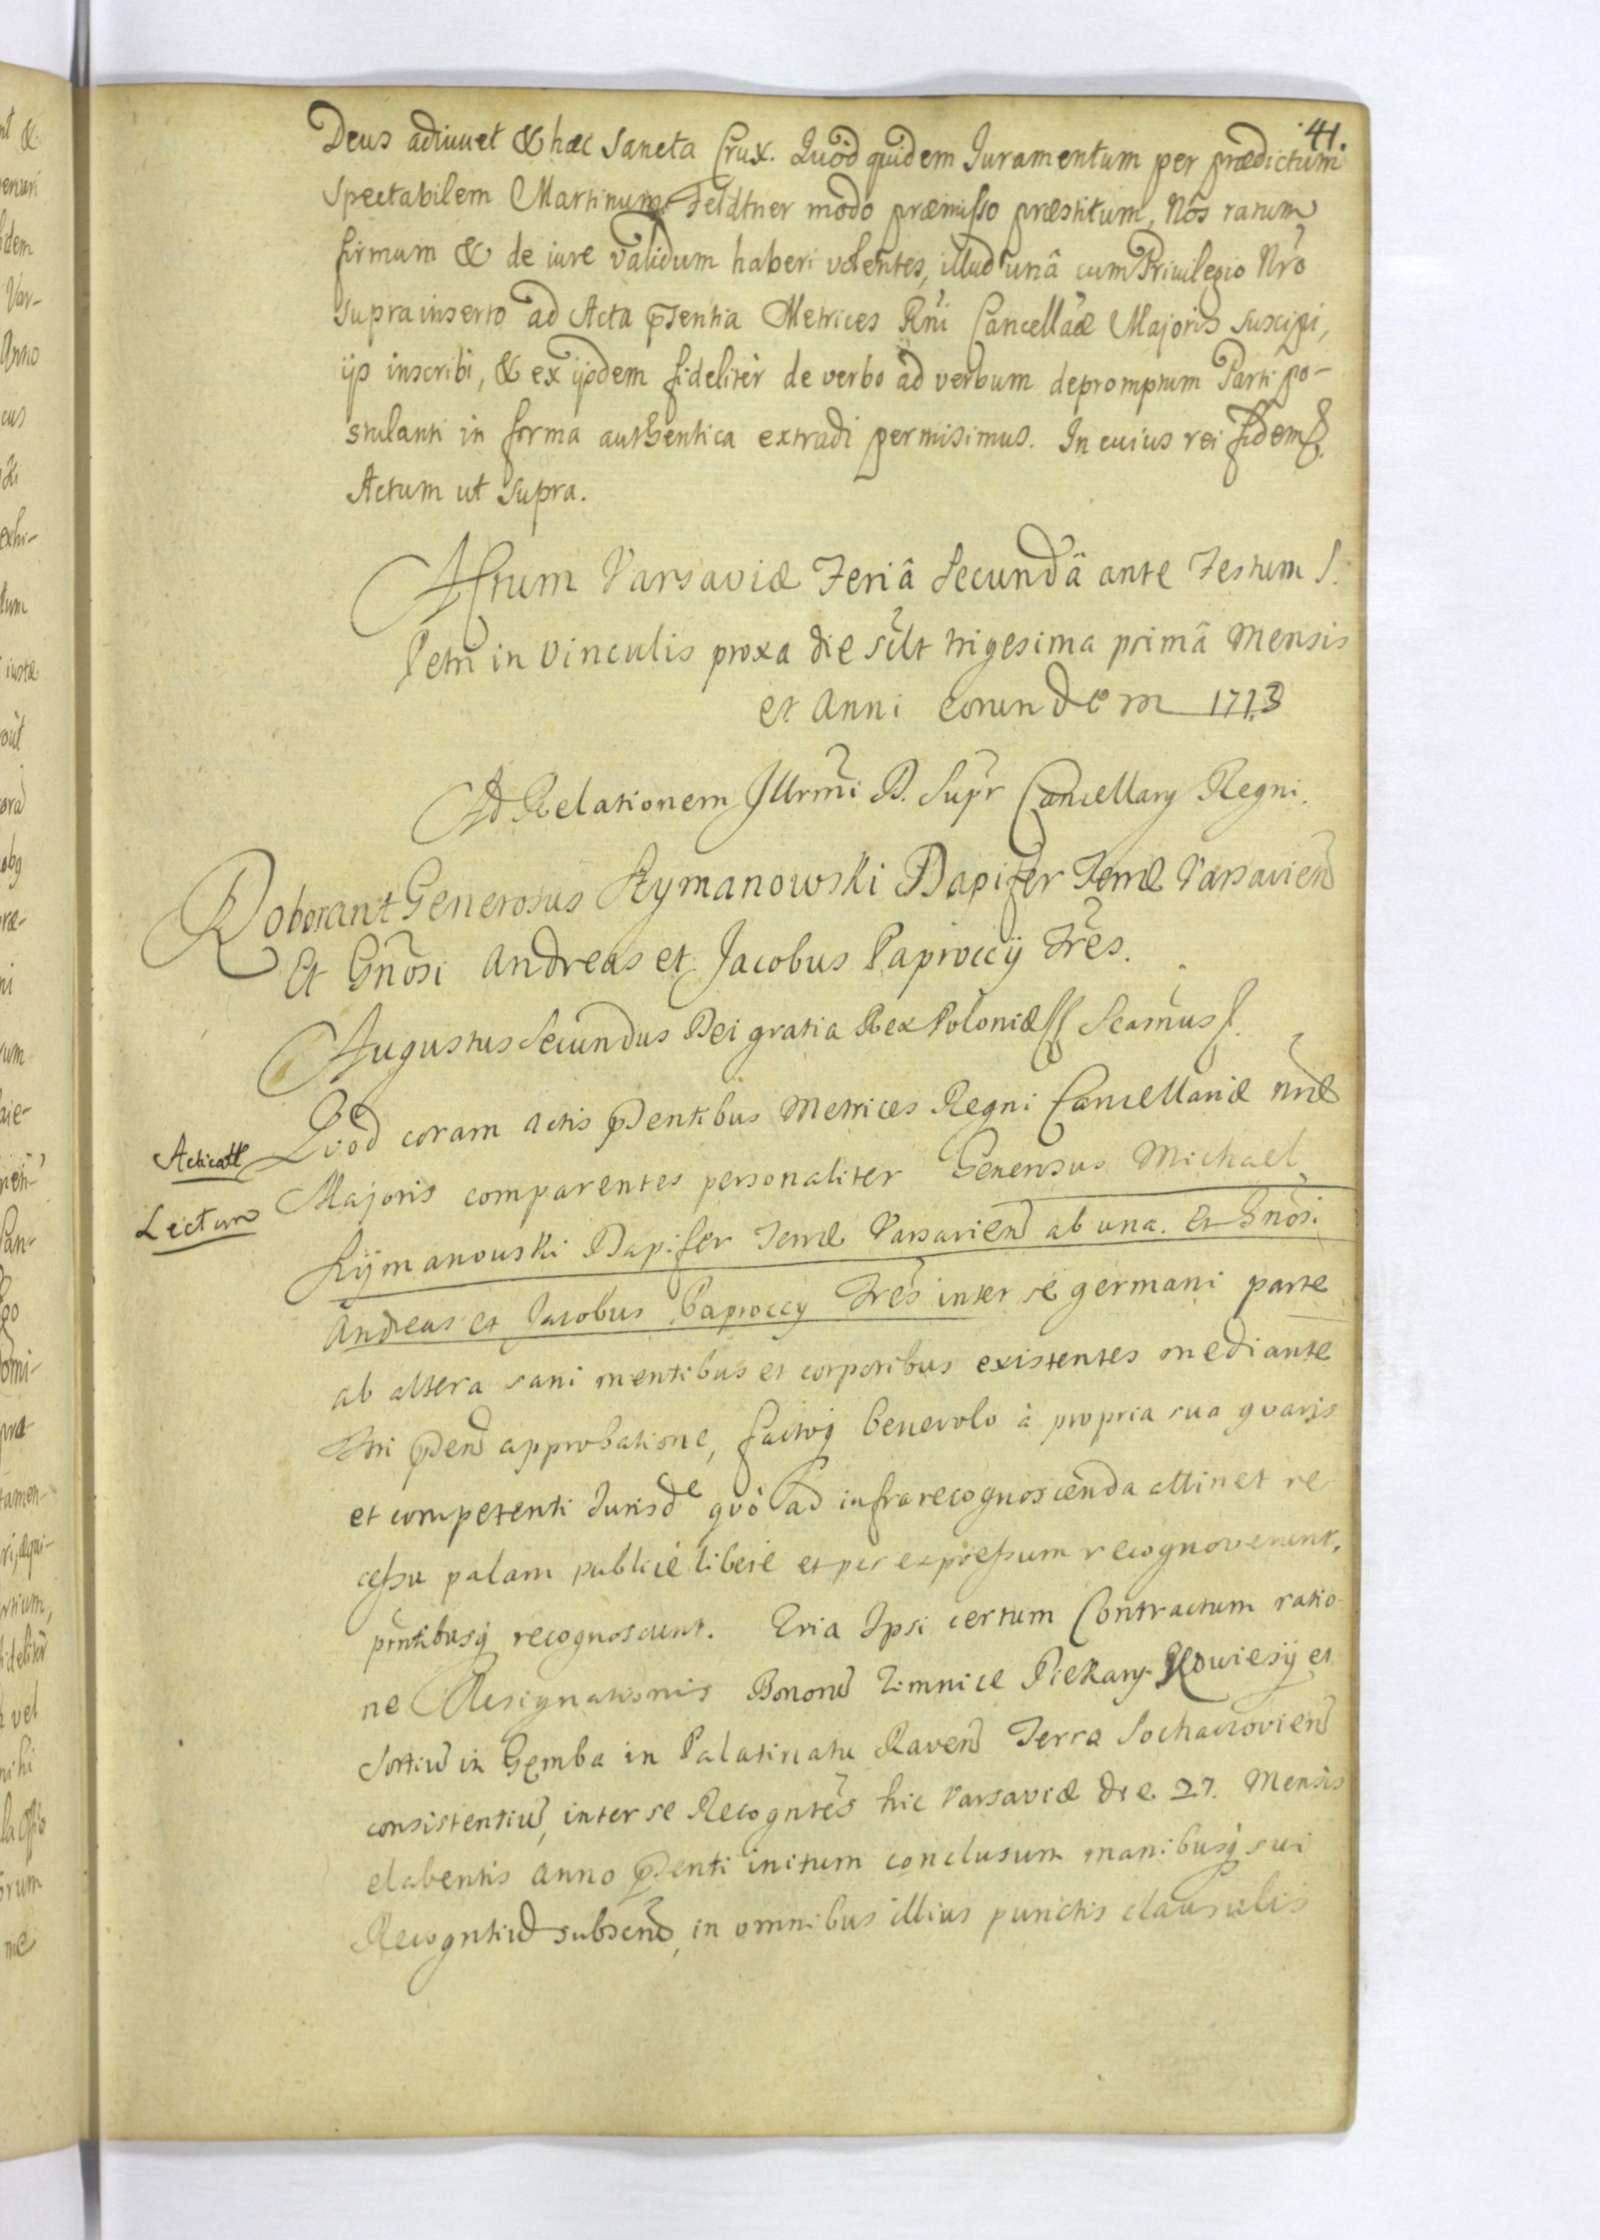 41.
Deus adiuuet & hæc Sancta Crux. Quod quidem Iuramentum per prædictum
Spectabilem Martinum Feldtner modo præmisso præstitum, Nos ratum
firmum & de iure validum haberi volentes, illud unâ cum Privilegio Nro
supra inserto ad Acta pñtia Metrices Rni Cancellae Majoris suscipi,
ijs inscribi, & ex ijsdem fideliter de verbo ad verbum depromptum Parti po-
stulanti in forma authentica extradi permisimus. In cuius rei fidem
Actum ut supra.
Actum Varsaviæ Feriâ Secundâ ante Festum S.
Petri in Vinculis proxa die scilt trigesima primâ Mensis
et Anni eorundem 1713
Ad Relationem Illrmi D. Supr Cancellary Regni.
Roborant Generosus Szymanowski Dapifer Terræ Varsavien
Et Gñosi Andreas et Jacobus Paproccij Fres.
Augustus Secundus Dei gratia Rex Poloniæ Scamus
Quod coram Actis pñtibus Metrices Regni Cancellariæ nræ
Acticatt
Majoris comparentes personaliter Generosus Michael
Lectum
Szymanouski Dapifer Terræ Varsavien ab una. Et Gnosi
Andreas et Jacobus Paproccy Fres inter se germani parte
ab altera sani mentibus et corporibus existentes mediante
approbatione, factoq benevolo à propria sua quavis
et competenti Jurisde quô ad infra recognoscenda attinet re
cessu palam publicè liberè et per expressum recognoverunt,
prntibusq recognoscunt. Qvia Ipsi certum Contractum ratio
ne Resignationis Bonoru Zimnice Piekary et
Sortiu in Gemba in Palatinatu Raven Terra Sochacovien
consistentiu, inter se Recogntes hic Varsaviæ die 27. Mensis
elabentis anno pñti initum conclusum manibusq sui
Recogntiu subscru, in omnibus illius punctis clausulis